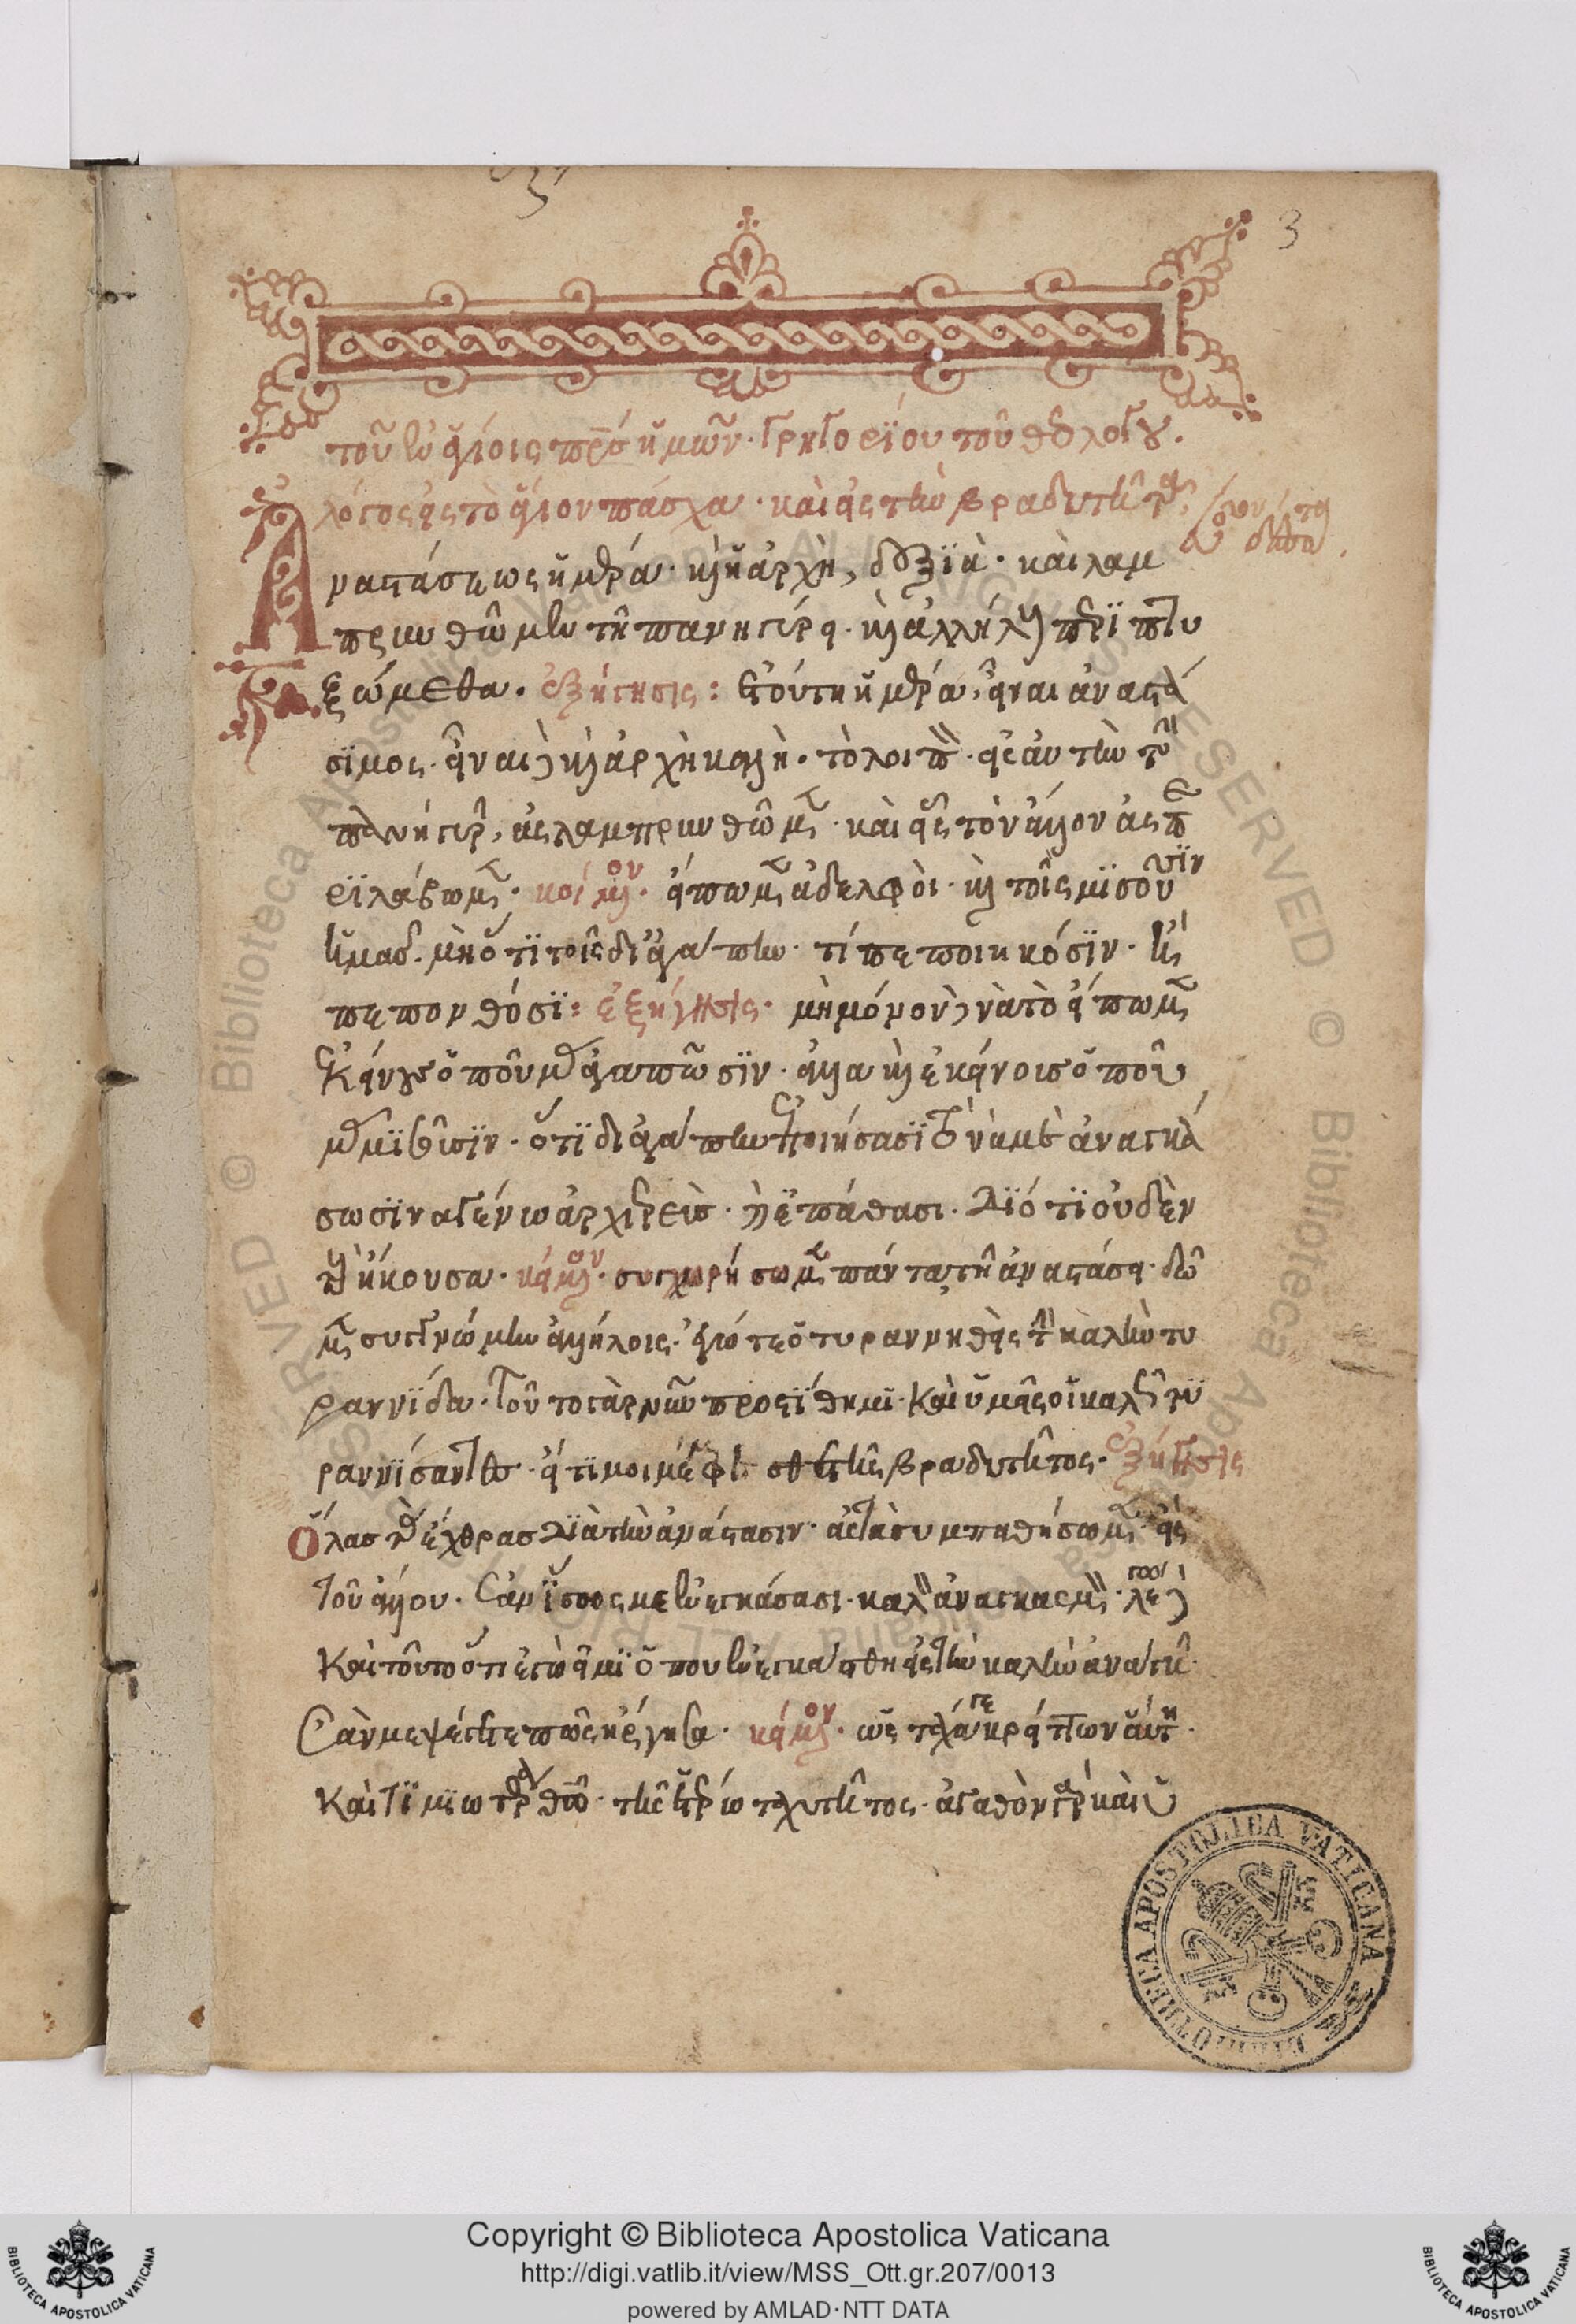 3
τοῦ ἐν ἁγίοις πρσ ἡμῶν· Γρηγορΐου τοῦ θεολόγου.
λόγος εἰς τὸ ἅγιον πάσχα· καὶ εἰς τὴν βραδυτῆτα
Αναστάσεως ἡμέρα· καὶ ἡ ἀρχὴ, δεξϊὰ· καὶ λαμ
πρυνθῶμεν τῆ πανηγύρει· καὶ ἀλλήλους περϊπτυ
ξώμεθα. ἐξήγησις: ἐτούτη ἡμέρα, εἶναι ἀναστά
σϊμος· εἶναι καὶ ἀρχὴ καλὴ· τὸ λοιπὸν· εἰς αὐτὴν τὴν
πανήγυριν, ἀς λαμπρυνθῶμεν· καὶ εἷς τὸν ἄλλον ἀς πε
ρϊλάβωμεν· κείμενον· εἴπωμεν ἀδελφοὶ· καὶ τοῖς μϊσοῦσϊν
ἡμᾶς. μὴ ὅτϊ τοῖς δι' ἀγάπην· τί πεποιηκόσϊν· ἢ
πεπονθόσϊ: ἐξήγησις· μὴ μόνον νὰ τὸ εἴπωμεν
ἐκείνους ὁποῦ μᾶς ἀγαπῶσϊν· ἀλλὰ καὶ ἐκείνοις ὁποῦ
μᾶς μϊσοῦσϊν· ὅτϊ δι ἀγάπην ἐποιήσασϊ νὰ με ἀναγκά
σωσϊ να γένω ἀρχιερεὺς· ἢ ἐπάθασι. Διότϊ οὐδὲν
τοὺς ἤκουσα· κείμενον· συγχωρήσωμεν πάντα τῆ ἀναστάσει· δῶ
μεν συγγνώμην ἀλλήλοις· ἐγώ τε ὁ τυραννηθεὶς τὴν καλὴν τυ
ραννϊδα· τοῦτο γὰρ νῦν προστϊθημϊ· Καὶ ὑμεῖς οἱ καλῶς τυ
ραννϊσαντες· εἴ τϊ μοι μέμφεσθε τῆς βραδυτῆτος· ἐξήγησις
Ὅλας τὰς ἔχθρας Διὰ τὴν ἀνάστασιν· ἀς τὰ συμπαθήσωμεν· εἷς
τοῦ ἄλλου. Ἐὰν ϊσως με ἐνεγκάσασι· καλὴν ἀναγκασμὸν·
Καὶ τοῦτο ὅτι ἐγὼ εἰμϊ ὁπου ἐνεγκάσθη εἰς τὴν καλὴν ἀνάγκη·
Ἐὰν με ψέγετε πῶς ἤργησα· κείμενον· ὡς τάχα κρείττων αὕτη·
Καὶ τϊμϊωτέρα θεῶ· τῆς ἑτέρω ταχυτῆτος· ἀγαθὸν γὰρ καὶ ὑ
BIBLIOTHECA APOSTOLICA VATICANA
Copyright © Biblioteca Apostolica Vaticana
http://digi.vatlib.it/view/MSS_Ott.gr.207/0013
powered by AMLAD·NTT DATA
BIBLIOTECA APOSTOLICA VATICANA
BIBLIOTECA APOSTOLICA VATICANA